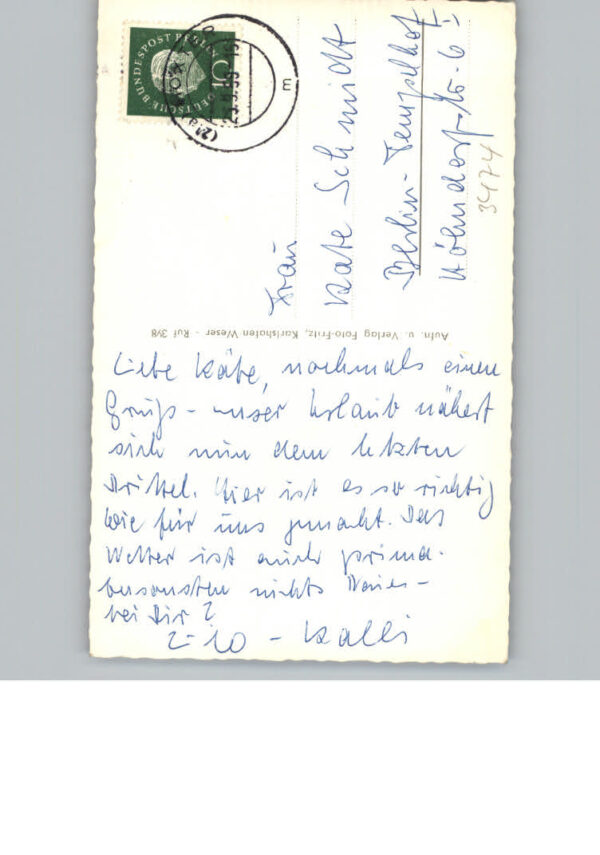 DEUTSCHE BUNDESPOST BERLIN
10
m
Frau
Käte Schmidt
Berlin-Tempelhof
3474
Aufn. u. Verlag Foto-Fritz, Karlshafen Weser - Ruf 378
Liebe Käte, nochmals einen
Gruß - unser Urlaub nähert
sich nun dem letzten
Drittel. Hier ist es so richtig
wie für uns gemacht. Das
Wetter ist auch prima.
Ansonsten nichts Neues -
bei Dir?
Kalli